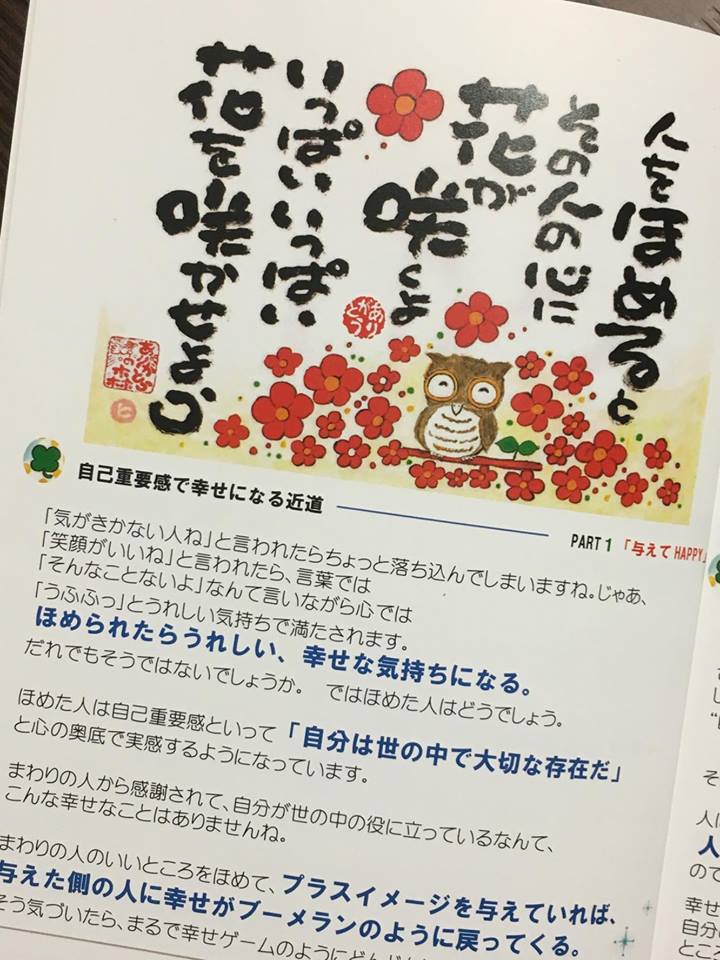 人をほめると
その人の心に
花が
咲くよ
いっぱいいっぱい
花を咲かせよう
ありがとう
自己重要感で幸せになる近道
PART 1 「与えてHAPPY」
「気がきかない人ね」と言われたらちょっと落ち込んでしまいますね。じゃあ、
「笑顔がいいね」と言われたら、言葉では
「そんなことないよ」なんて言いながら心では
「うふふっ」とうれしい気持ちで満たされます。
ほめられたらうれしい、幸せな気持ちになる。
だれでもそうではないでしょうか。 ではほめた人はどうでしょう。
ほめた人は自己重要感といって「自分は世の中で大切な存在だ」
と心の奥底で実感するようになっています。
まわりの人から感謝されて、自分が世の中の役に立っているなんて、
こんな幸せなことはありませんね。
まわりの人のいいところをほめて、プラスイメージを与えていれば、
与えた側の人に幸せがブーメランのように戻ってくる。
そう気づいたら、まるで幸せゲームのように